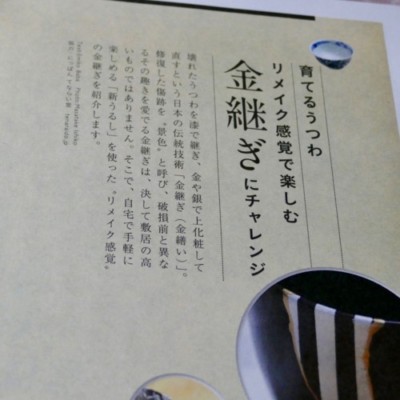 育てるうつわ
リメイク感覚で楽しむ
金継ぎにチャレンジ
壊れたうつわを漆で継ぎ、金や銀で上化粧して
直すという日本の伝統技術「金継ぎ（金繕い）」。
修復した傷跡を“景色”と呼び、破損前と異な
るその趣きを愛でる金継ぎは、決して敷居の高
いものではありません。そこで、自宅で手軽に
楽しめる「新うるし」を使った“リメイク感覚”
の金継ぎを紹介します。